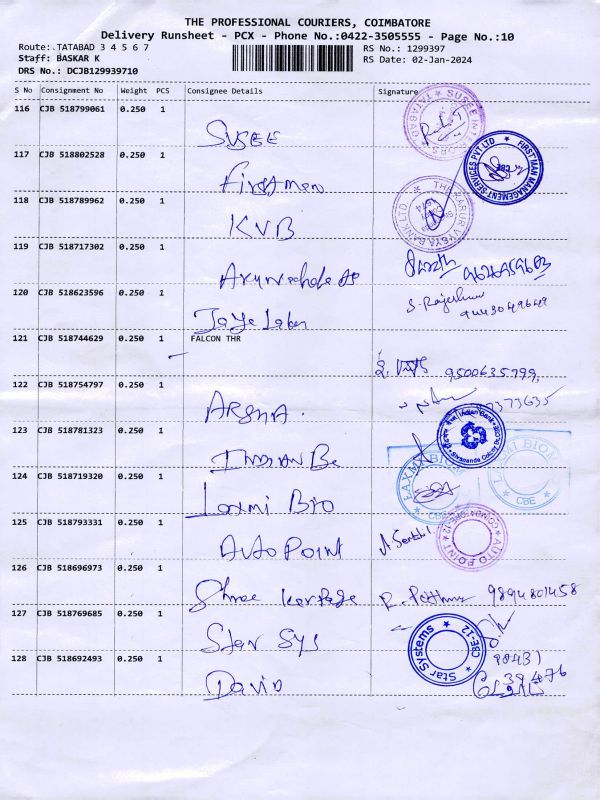 THE PROFESSIONAL COURIERS, COIMBATORE
Delivery Runsheet - PCX - Phone No.:0422-3505555 - Page No.:10
Route:.TATABAD 3 4 5 6 7 RS No.: 1299397
Staff: BASKAR K RS Date: 02-Jan-2024
DRS No.: DCJB129939710
S No Consignment No Weight PCS Consignee Details Signature
116 CJB 518799061 0.250 1
SUSEE
117 CJB 518802528 0.250 1
FIRSTMAN MANAGEMENT SERVICES PVT LTD CBE
Firstmen
118 CJB 518789962 0.250 1
KVB
119 CJB 518717302 0.250 1
120 CJB 518623596 0.250 1
S. Rajeshwari
9443049649
121 CJB 518744629 0.250 1 FALCON THR
9500635799
122 CJB 518754797 0.250 1
ARSHA.
7373635
123 CJB 518781323 0.250 1
Indian Bank
INDIAN Be
124 CJB 518719320 0.250 1
LAXMI BION CBE
LAXMI BION CBE
Laxmi Bio
125 CJB 518793331 0.250 1
AUTO POINT COIMBATORE-12
Auto Point
126 CJB 518696973 0.250 1
Shree 9894801458
127 CJB 518769685 0.250 1
Star Systems CBE-12
Star Sys
128 CJB 518692493 0.250 1
90431
39476
David